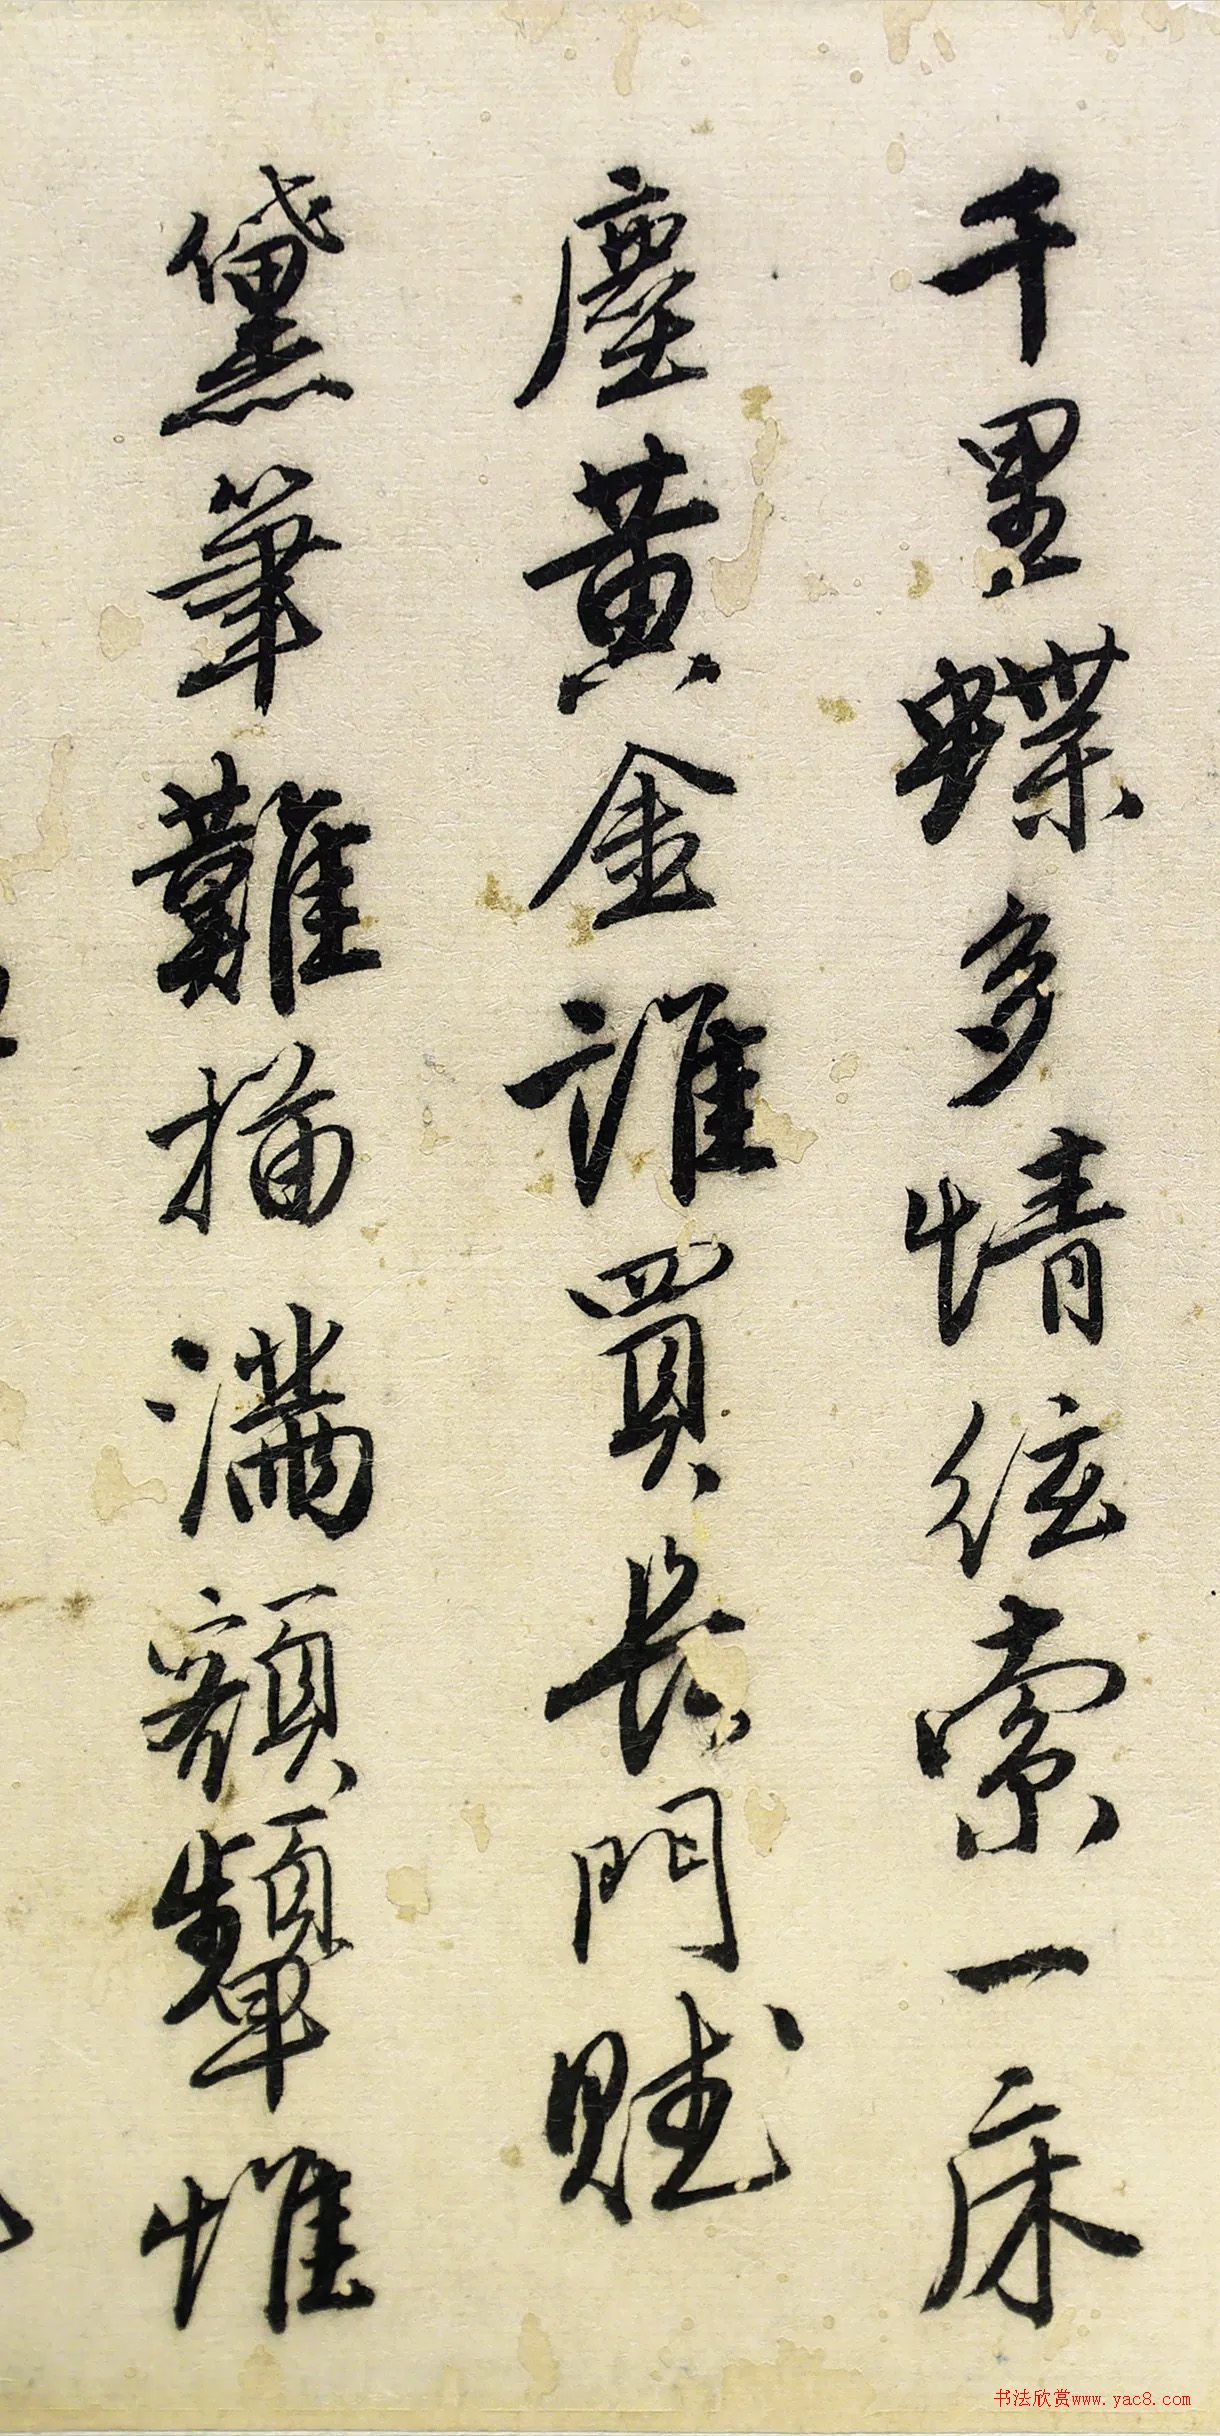 千里蝶多情絃索一床
塵黃金誰買長門賦
黛筆難描滿額顰惟
书法欣赏www.yac8.com